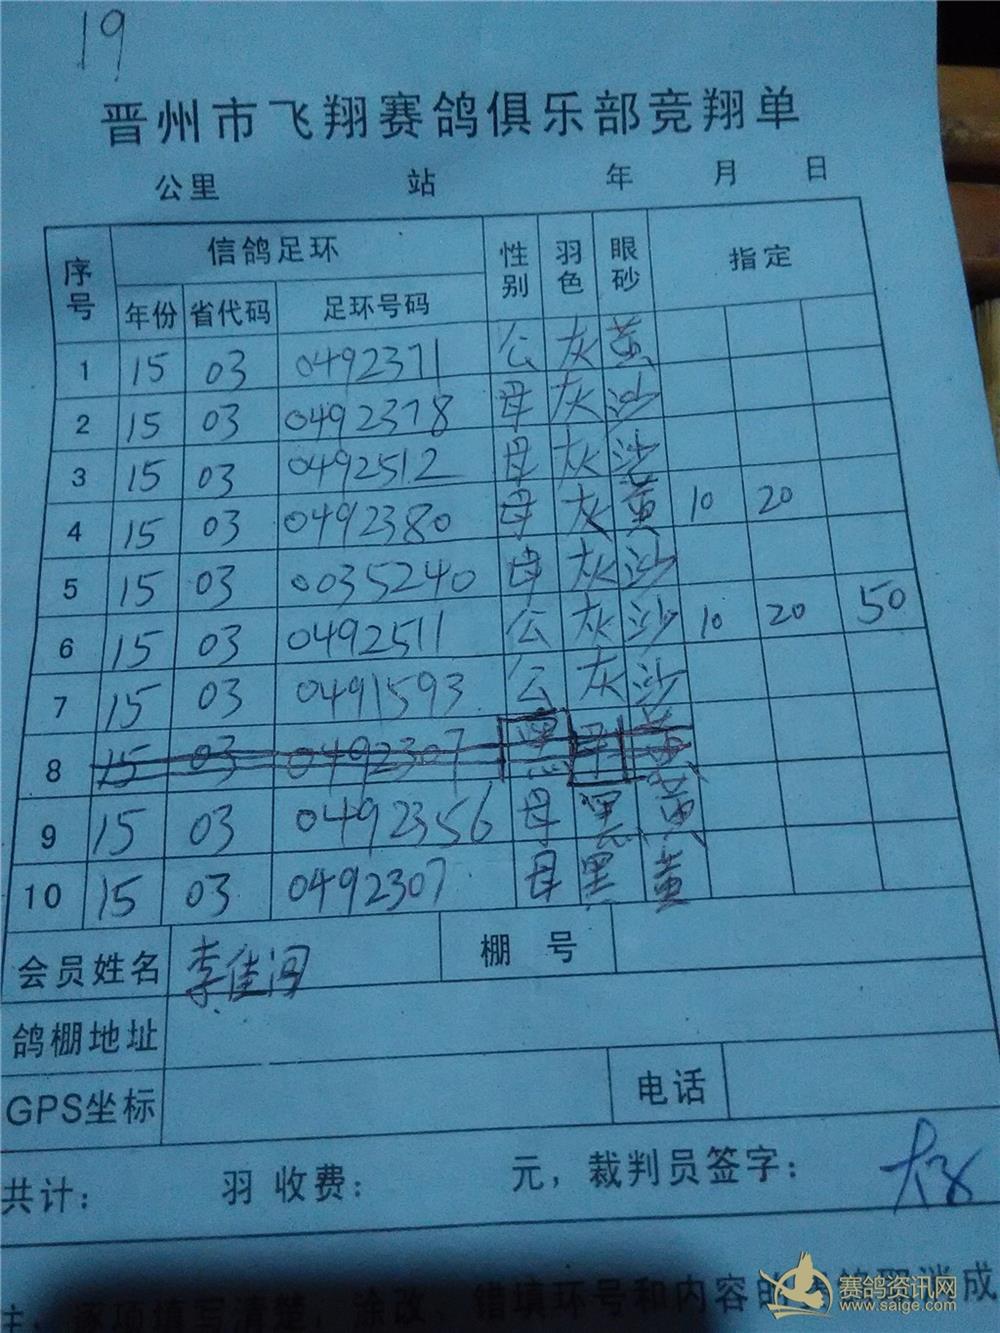 19
晋州市飞翔赛鸽俱乐部竞翔单
公里 站 年 月 日
序号 信鸽足环 性别 羽色 眼砂 指定
年份 省代码 足环号码
1 15 03 0492371 公 灰 黄
2 15 03 0492378 母 灰 沙
3 15 03 0492512 母 灰 沙
4 15 03 0492380 母 灰 黄 10 20
5 15 03 0035240 母 灰 沙
6 15 03 0492511 公 灰 沙 10 20 50
7 15 03 0491593 公 灰 沙
8 15 03 0492307 黑 母 黄
9 15 03 0492356 母 黑 黄
10 15 03 0492307 母 黑 黄
会员姓名 李佳 棚号
鸽棚地址
GPS坐标 电话
共计： 羽 收费： 元，裁判员签字：
清楚，涂改、错填环号和内容的 成
赛鸽资讯网
www.saige.com